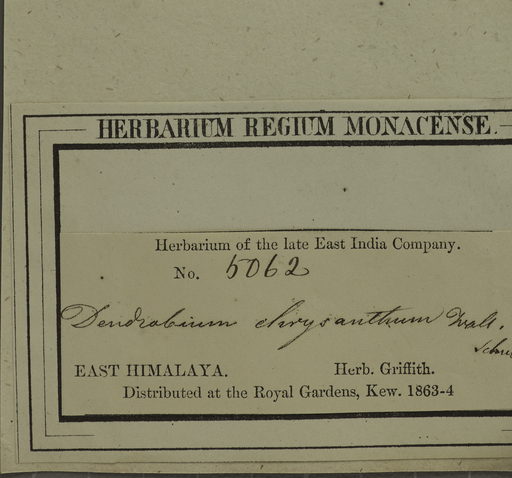 HERBARIUM REGIUM MONACENSE.
Herbarium of the late East India Company.
No. 5062
Dendrobium chrysanthum Wall.
EAST HIMALAYA. Herb. Griffith.
Distributed at the Royal Gardens, Kew. 1863-4